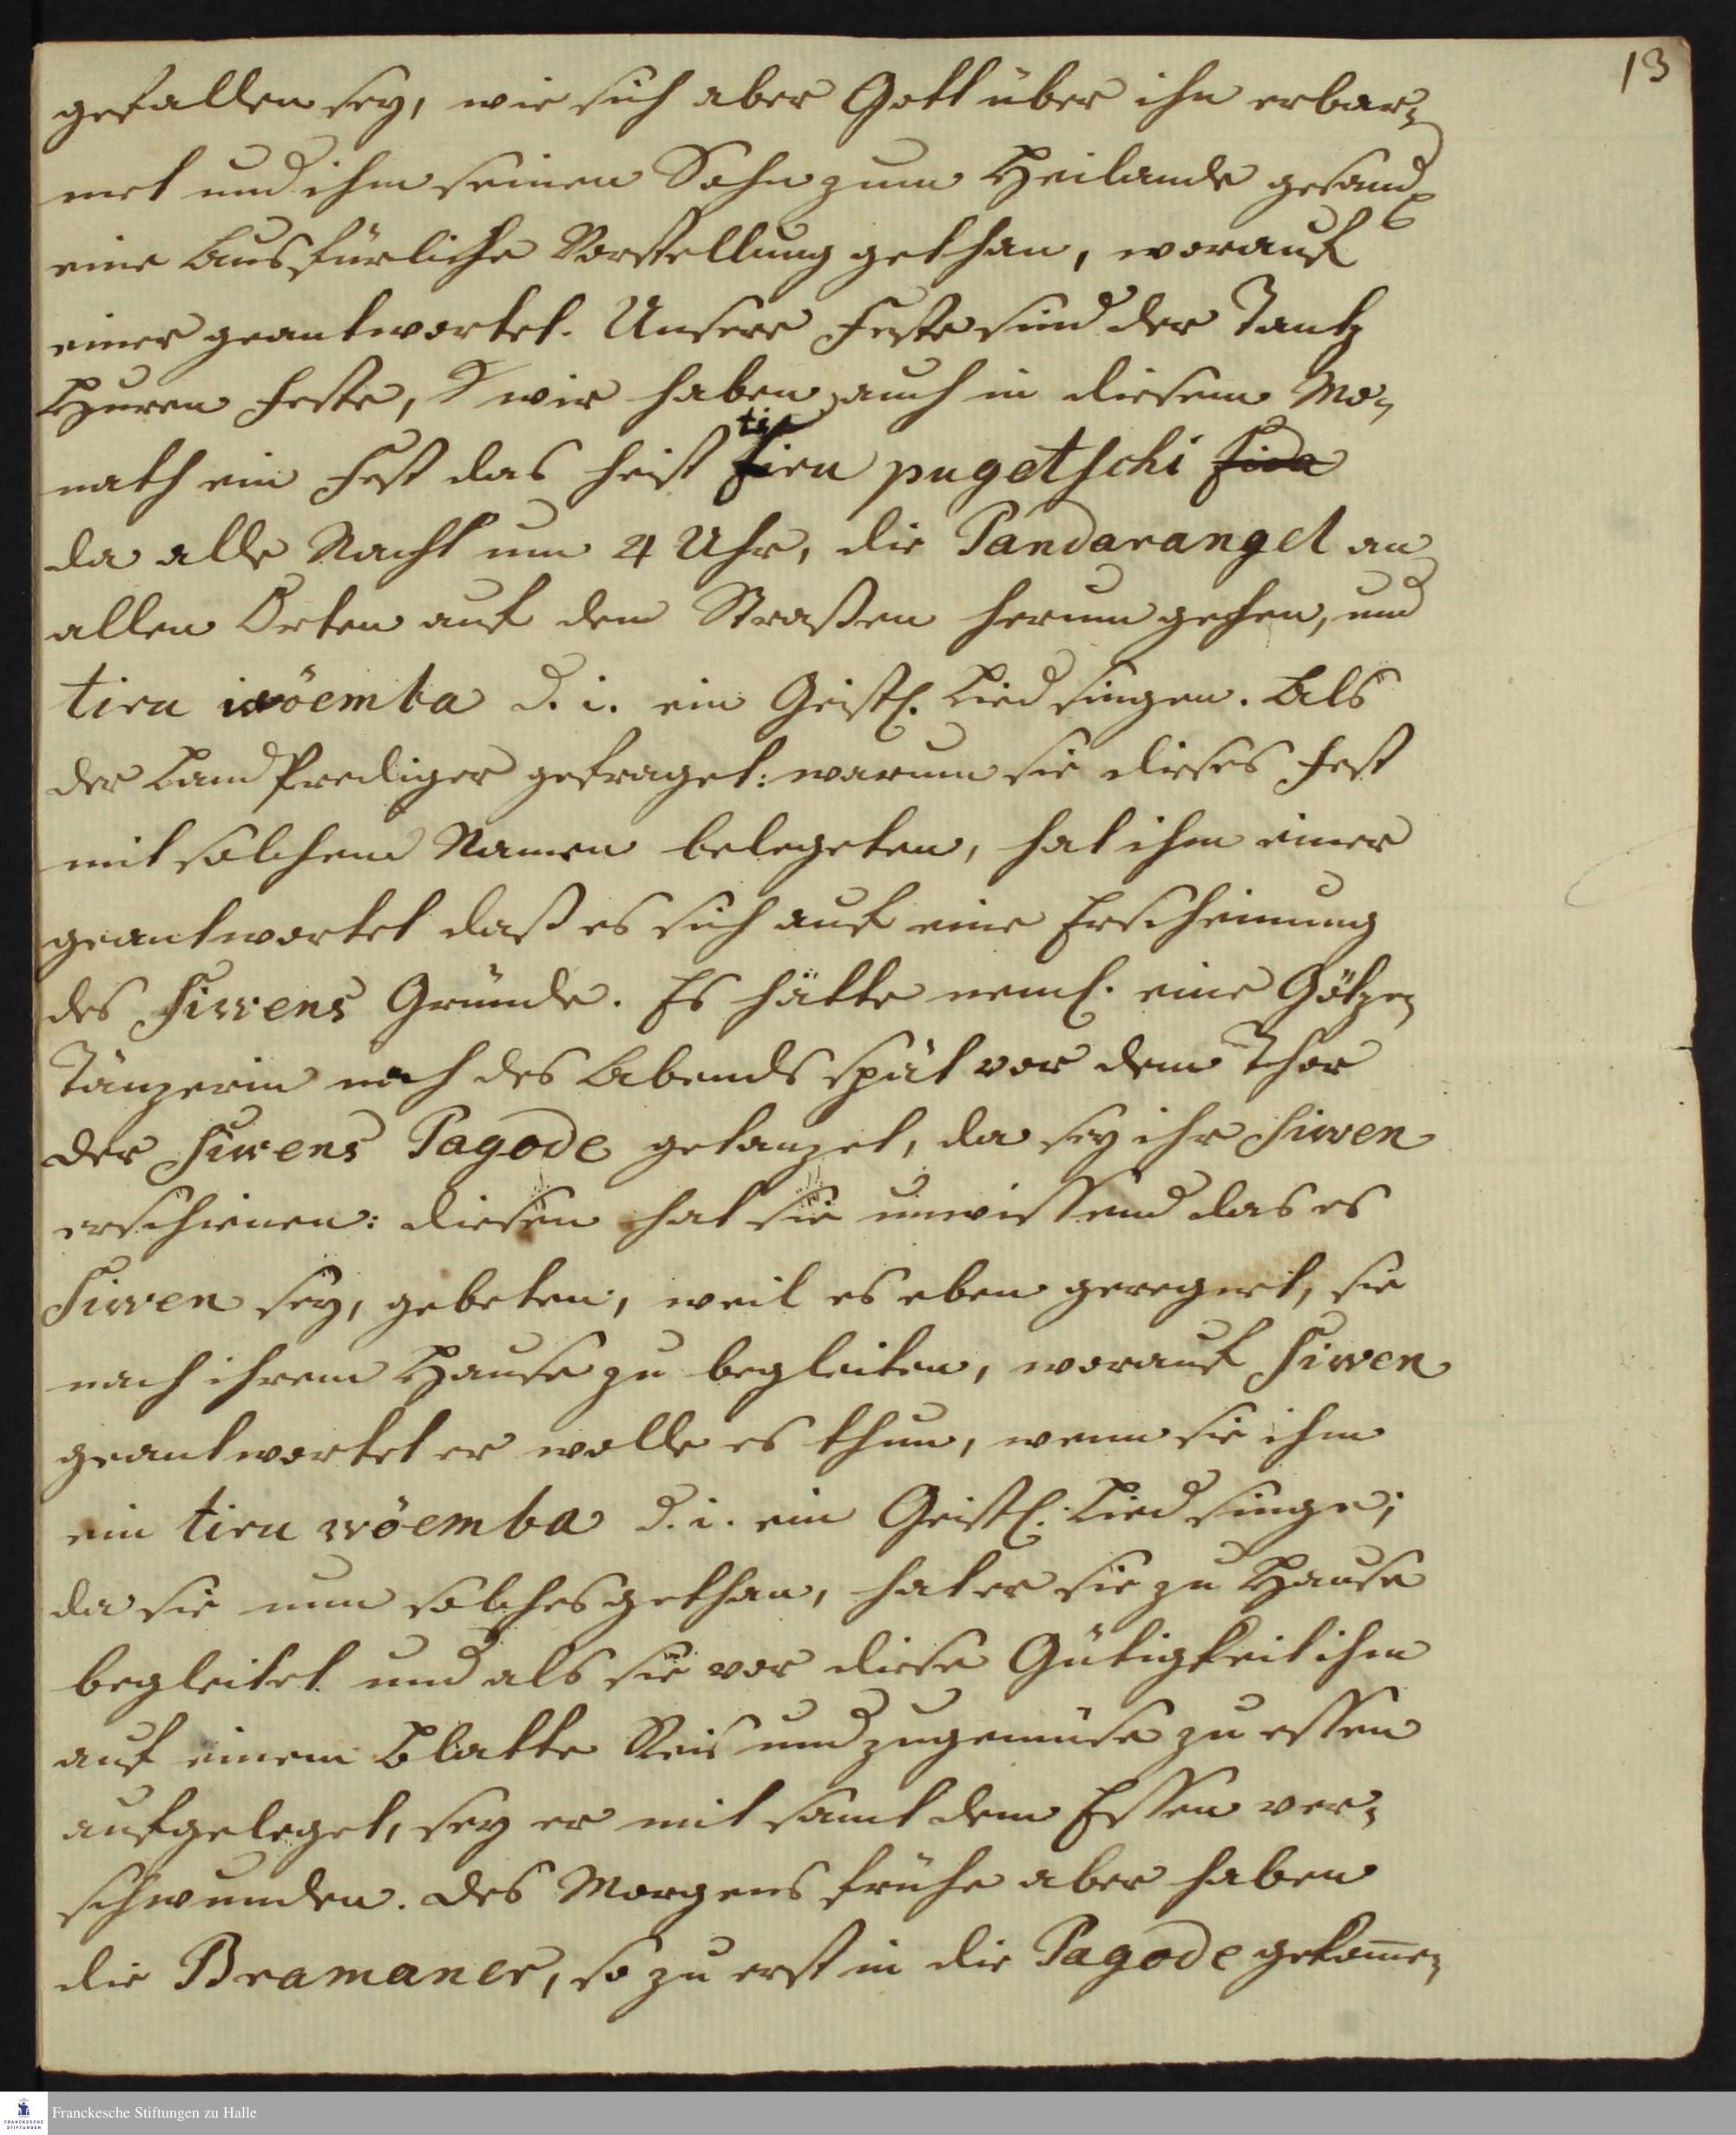 13
gefallen sey, wie sich aber Gott über ihn erbar¬
met und ihm seinen Sohn zum Heilande gesand
eine Ausfürliche Vorstellung gethan, worauf
einer geantwortet. Unsere Feste sind der Tantz
Huren Feste, wir haben auch in diesem Mo¬
nath ein Fest das heist tiru pugetschi
da alle Nacht um 4 Uhr, die Pandarangel an
allen Orten auf den Straßen herum gehen, und
tiru wöemba d. i. ein Geistl. Lied singen. Als
der Land Prediger gefraget: warum sie dieses Fest
mit solchem Namen belegeten, hat ihm einer
geantwortet daß es sich auf eine Erscheinung
des Siwens Gründe. Es hätte neml. eine Götzen
Tänzerin noch des Abends spät vor dem Thor
der Siwens Pagode getanzet, da sey ihr Siwen
erschienen: diesen hat sie unwissend das es
Siwen sey, gebeten, weil es eben geregnet, sie
nach ihrem Hause zu begleiten, worauf Siwen
geantwortet er wolle es thun, wenn sie ihm
ein tiru wöemba d. i. ein Geistl. Lied singe;
da sie nun solches gethan, hat er sie zu Hause
begleitet und als sie vor diese Gütigkeit ihm
auf einem Blatte Reis und zugemüse zu essen
aufgeleget, sey er mit samt dem Essen ver¬
schwunden. des Morgens frühe aber haben
die Bramaner, so zu erst in die Pagode gekom̅en
FRANCKESCHE STIFTUNGEN
Franckesche Stiftungen zu Halle